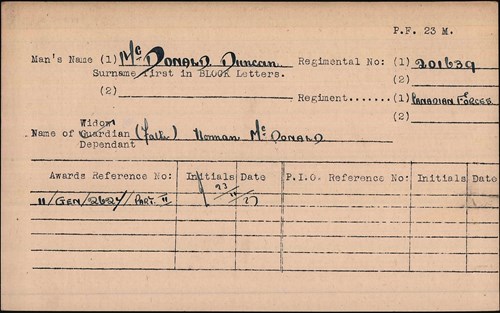 P.F. 23 M.
Man's Name (1) McDONALD Duncan Regimental No: (1) 201639
Surname first in BLOCK Letters. (2)
(2) Regiment.......(1) CANADIAN FORCES
(2)
Widow
Name of Guardian (Father) Norman McDONALD
Dependant
Awards Reference No: Initials Date P.I.O. Reference No: Initials Date
11/GEN/262Y/PART II 23/11/27